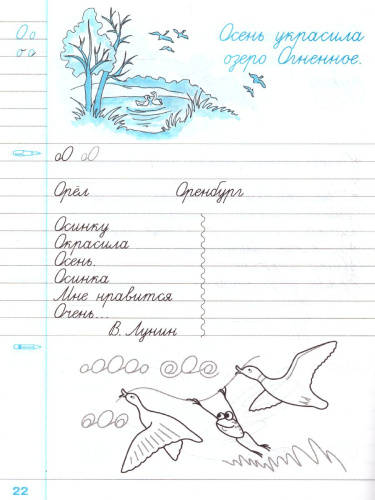 Оо
оо
Осень украсила
озеро Огненное.
оО оО
Орёл Оренбург
Осинку
Окрасила
Осень.
Осинка
Мне нравится
Очень...
В. Лунин
22